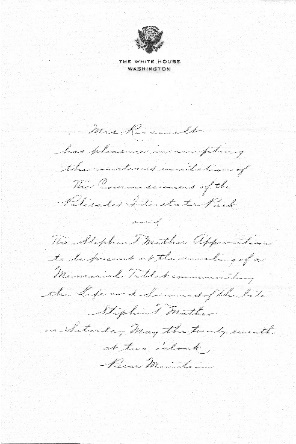 THE WHITE HOUSE
WASHINGTON
Mrs. Roosevelt
has pleasure in accepting
the kind invitation of
The Commissioners of the
Palisades Interstate Park
and
The Stephen T. Mather Appreciation
to be present at the unveiling of a
Memorial Tablet commemorating
the Life and character of the late
Stephen T. Mather
on Saturday May the twenty seventh
at two o'clock,
Bear Mountain